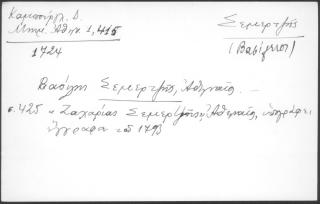 Καμπούρογλ. Δ.
Μνημ. Αθην. 1,415
1724
Σεμερτζής
(Βασίλειος)
Βασίλης Σεμερτζής, Αθηναίος. —
σ. 425 " Ζαχαρίας Σεμερτζής, Αθηναίος, υπογράφει
έγγραφα τού 1793